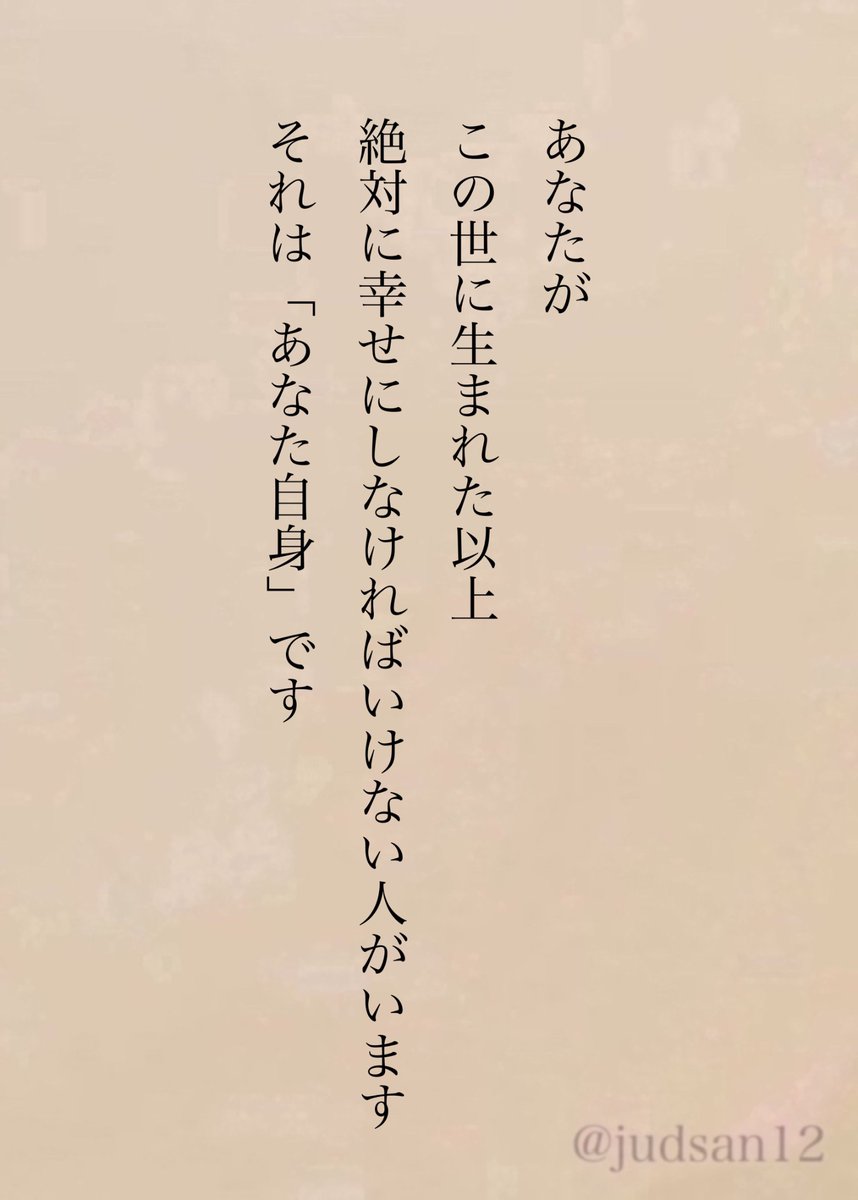 あなたが
この世に生まれた以上
絶対に幸せにしなければいけない人がいます
それは「あなた自身」です
@judsan12